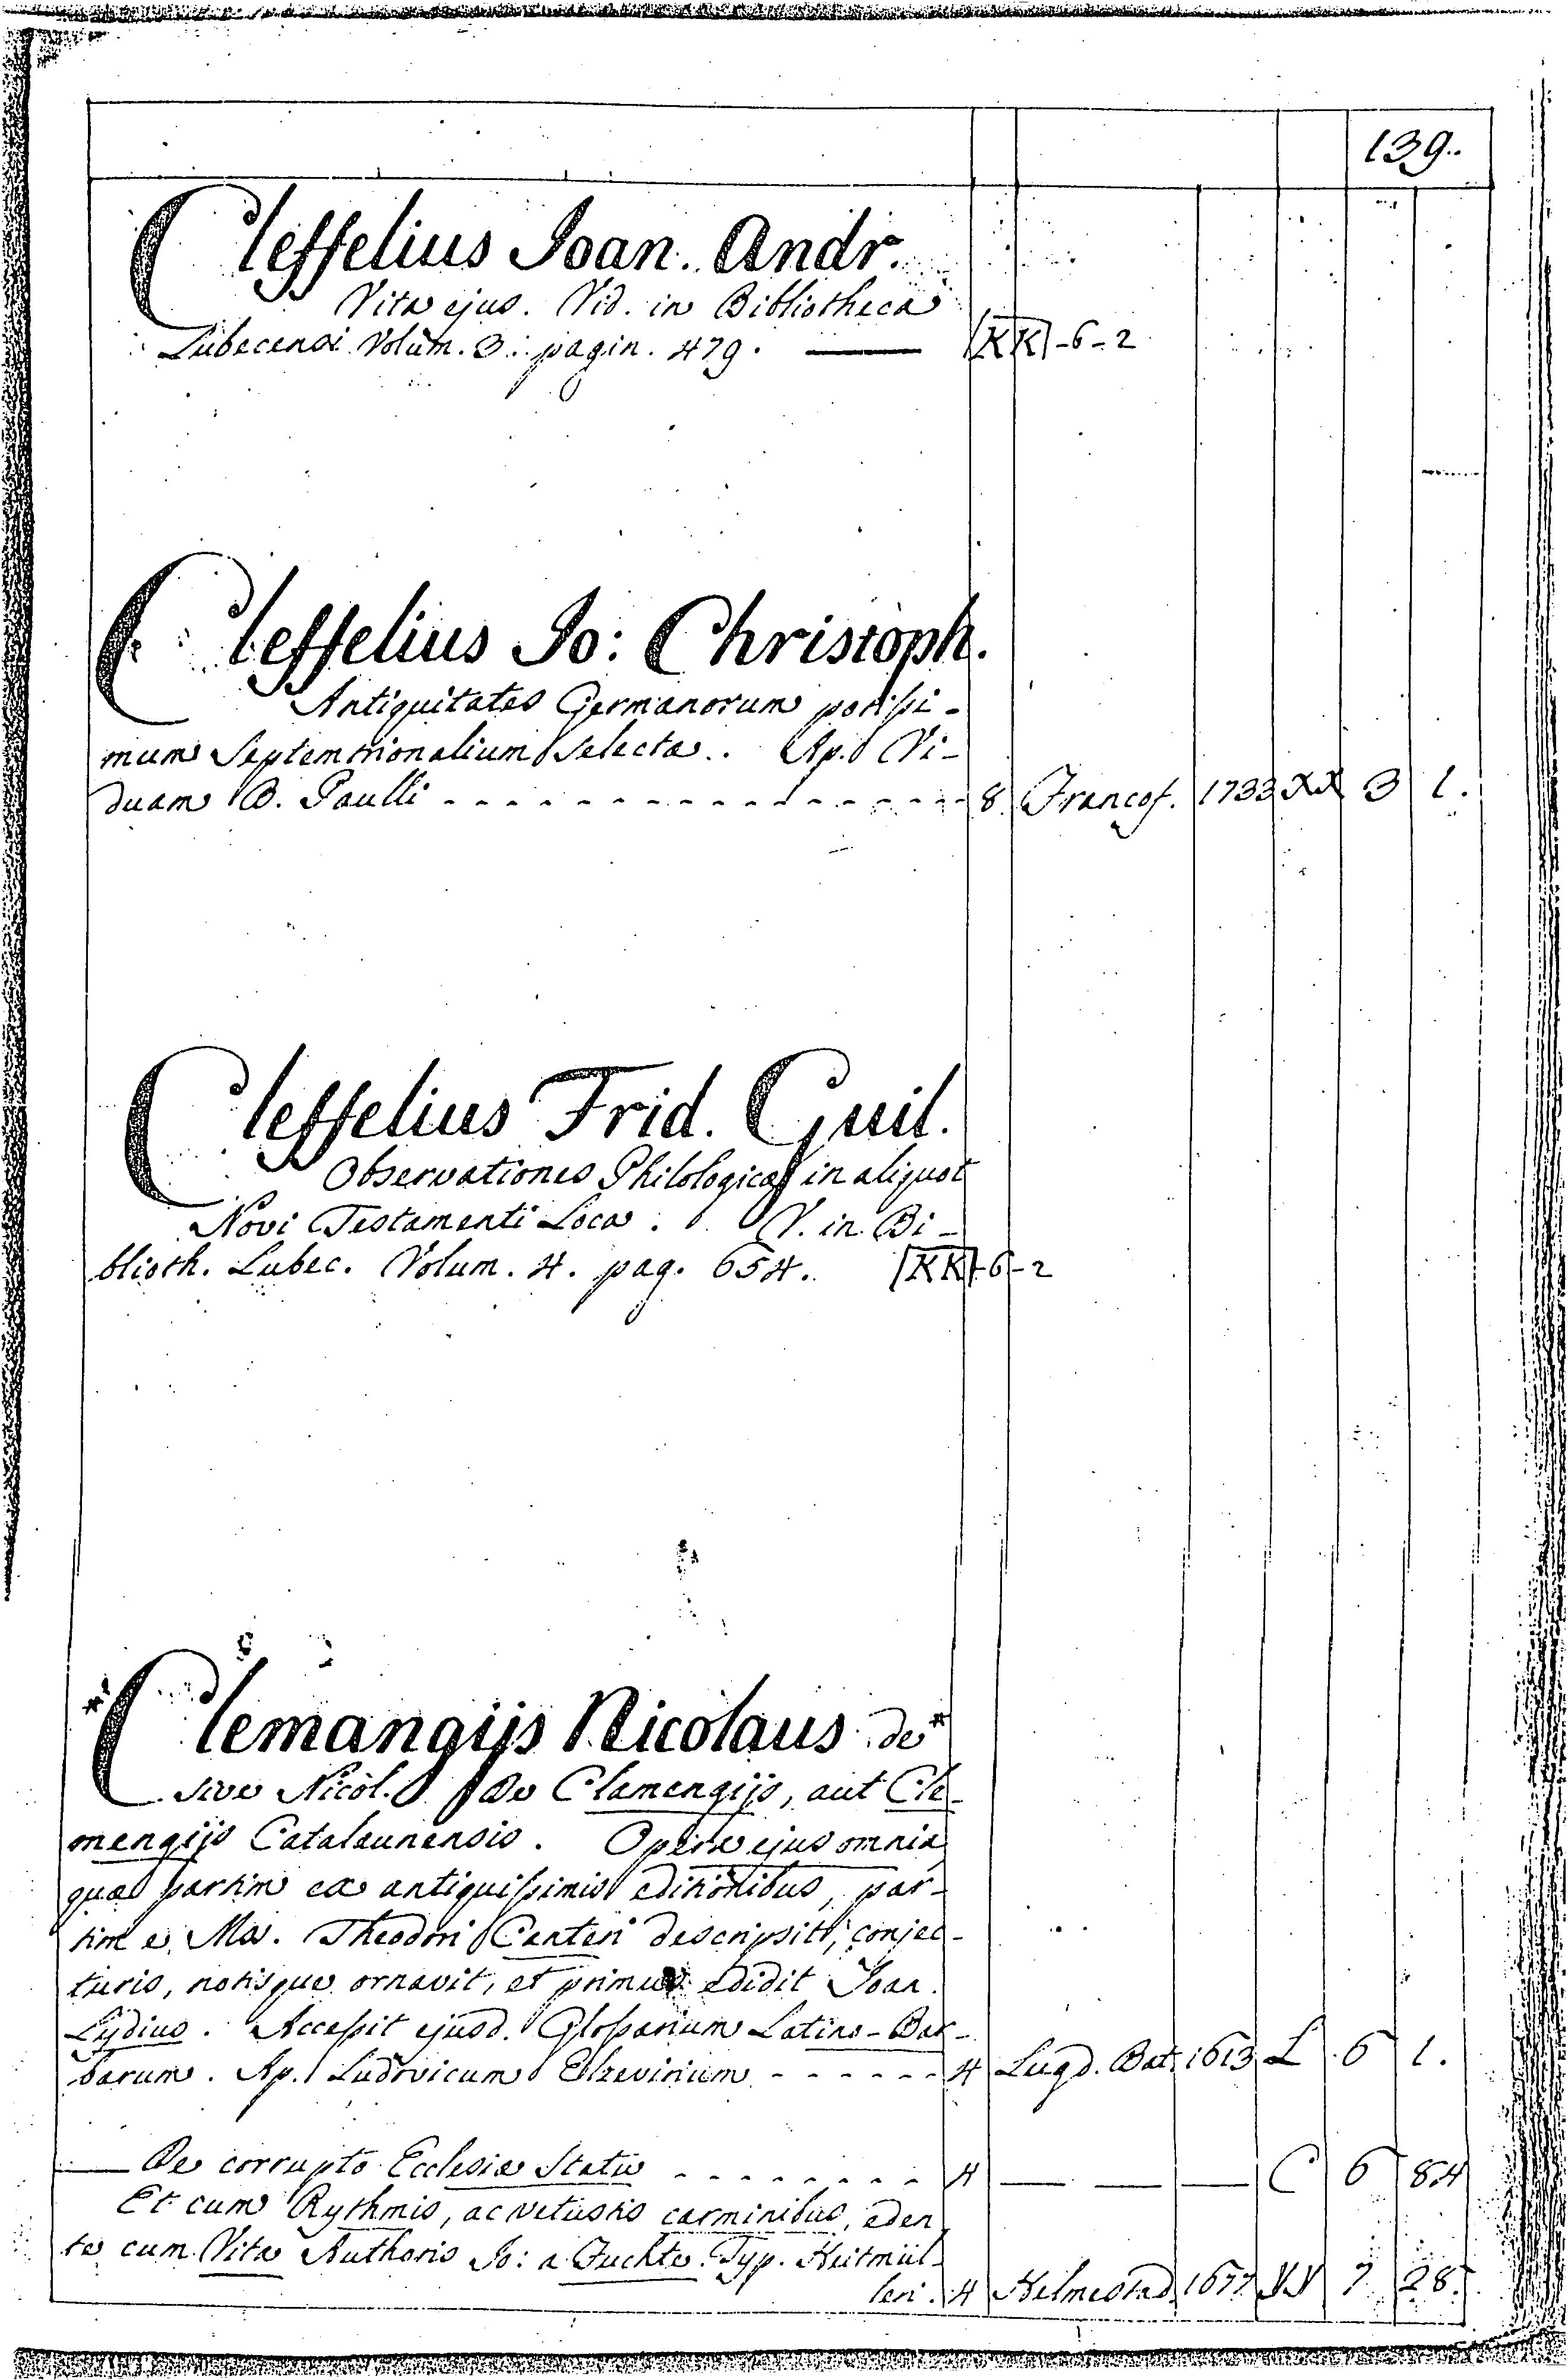 139.
Cleffelius Joan. Andr.
Vita ejus. Vid. in Bibliotheca
Lubecensi Volum. 3. pagin. 479. KK-6-2
Cleffelius Jo: Christoph.
Antiquitates Germanorum potissi-
mum Septemtrionalium selectæ. Ap. Vi-
duam B. Paulli - - - - - - - - - - - - - - - - 8 Francof. 1733 XX 3 1.
Cleffelius Frid. Guil.
Observationes Philologicæ in aliquot
Novi Testamenti Loca. V. in Bi-
blioth. Lubec. Volum. 4. pag. 654. KK-6-2
*Clemangijs Nicolaus de*
sive Nicol. De Clamengijs, aut Cle-
mengijs Catalaunensis. Opera ejus omnia
quæ partim ex antiquissimis editionibus, par-
tim e Ms. Theodori Canteri descripsit, conjec-
turis, notisque ornavit, et primus edidit Joan.
Lydius. Accessit ejusd. Glossarium Latino-Bar-
barum. Ap. Ludovicum Elzevirium - - - - - - 4 Lugd. Bat. 1613 L 6 1.
— De corrupto Ecclesiæ Statu - - - - - - - - 4 — — — C 6 84
Et cum Rythmis, ac vetustis carminibus, eden
te cum Vita Authoris Jo: a Fuchte. Typ. Heitmül-
leri. 4 Helmestad. 1677 7 28.